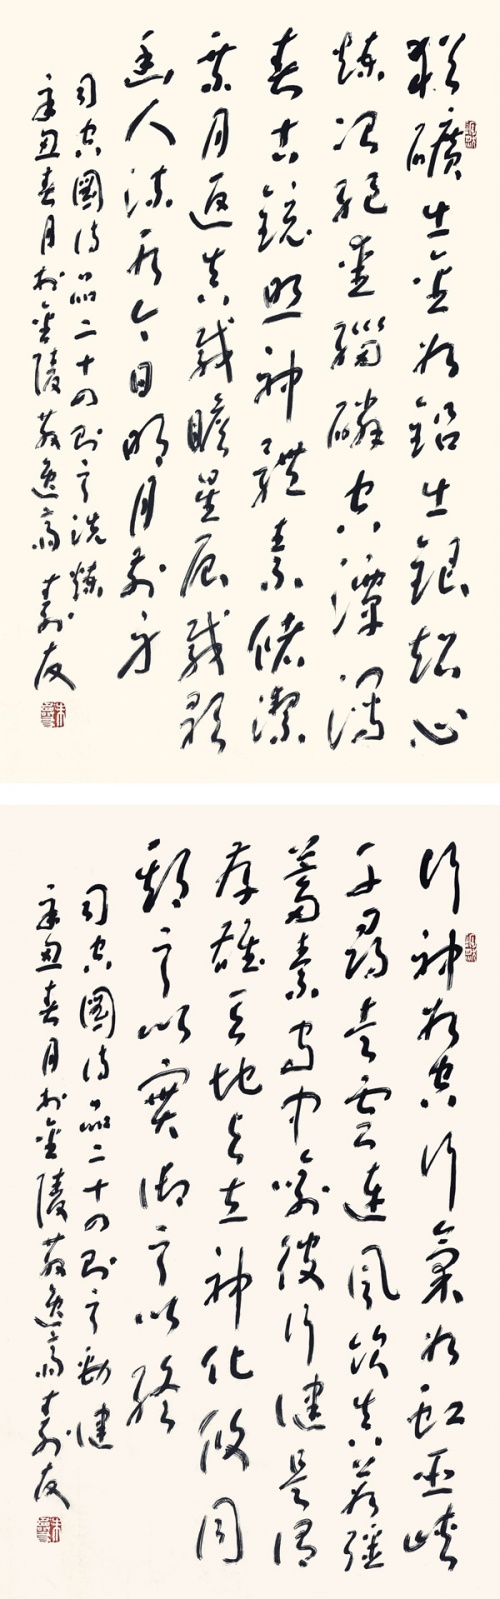 猶礦出金如鉛出銀超心
煉冶絕愛緇磷空潭瀉
春古鏡照神體素儲潔
乘月返真載瞻星辰載歌
幽人流水今日明月前身
司空圖詩品二十四則之洗煉
辛丑春月於金陵散逸齋壽友
行神如空行氣如虹巫峽
千尋走雲連風飲真茹強
蓄素守中喻彼行健是謂
存雄天地與立神化攸同
期之以實御之以終
司空圖詩品二十四則之勁健
辛丑春月於金陵散逸齋壽友